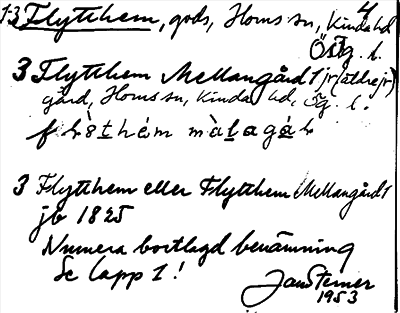 13 Flytthem, gods, Horns sn, Kinda hd 4
Östg. l.
3 Flytthem Mellangård 1 jr (äldre jr)
gård, Horns sn, Kinda hd, Ög. l.
3 Flytthem eller Flytthem Mellangård 1
jb 1825
Numera bortlagd benämning
Se lapp 1!
Jan Sterner
1953